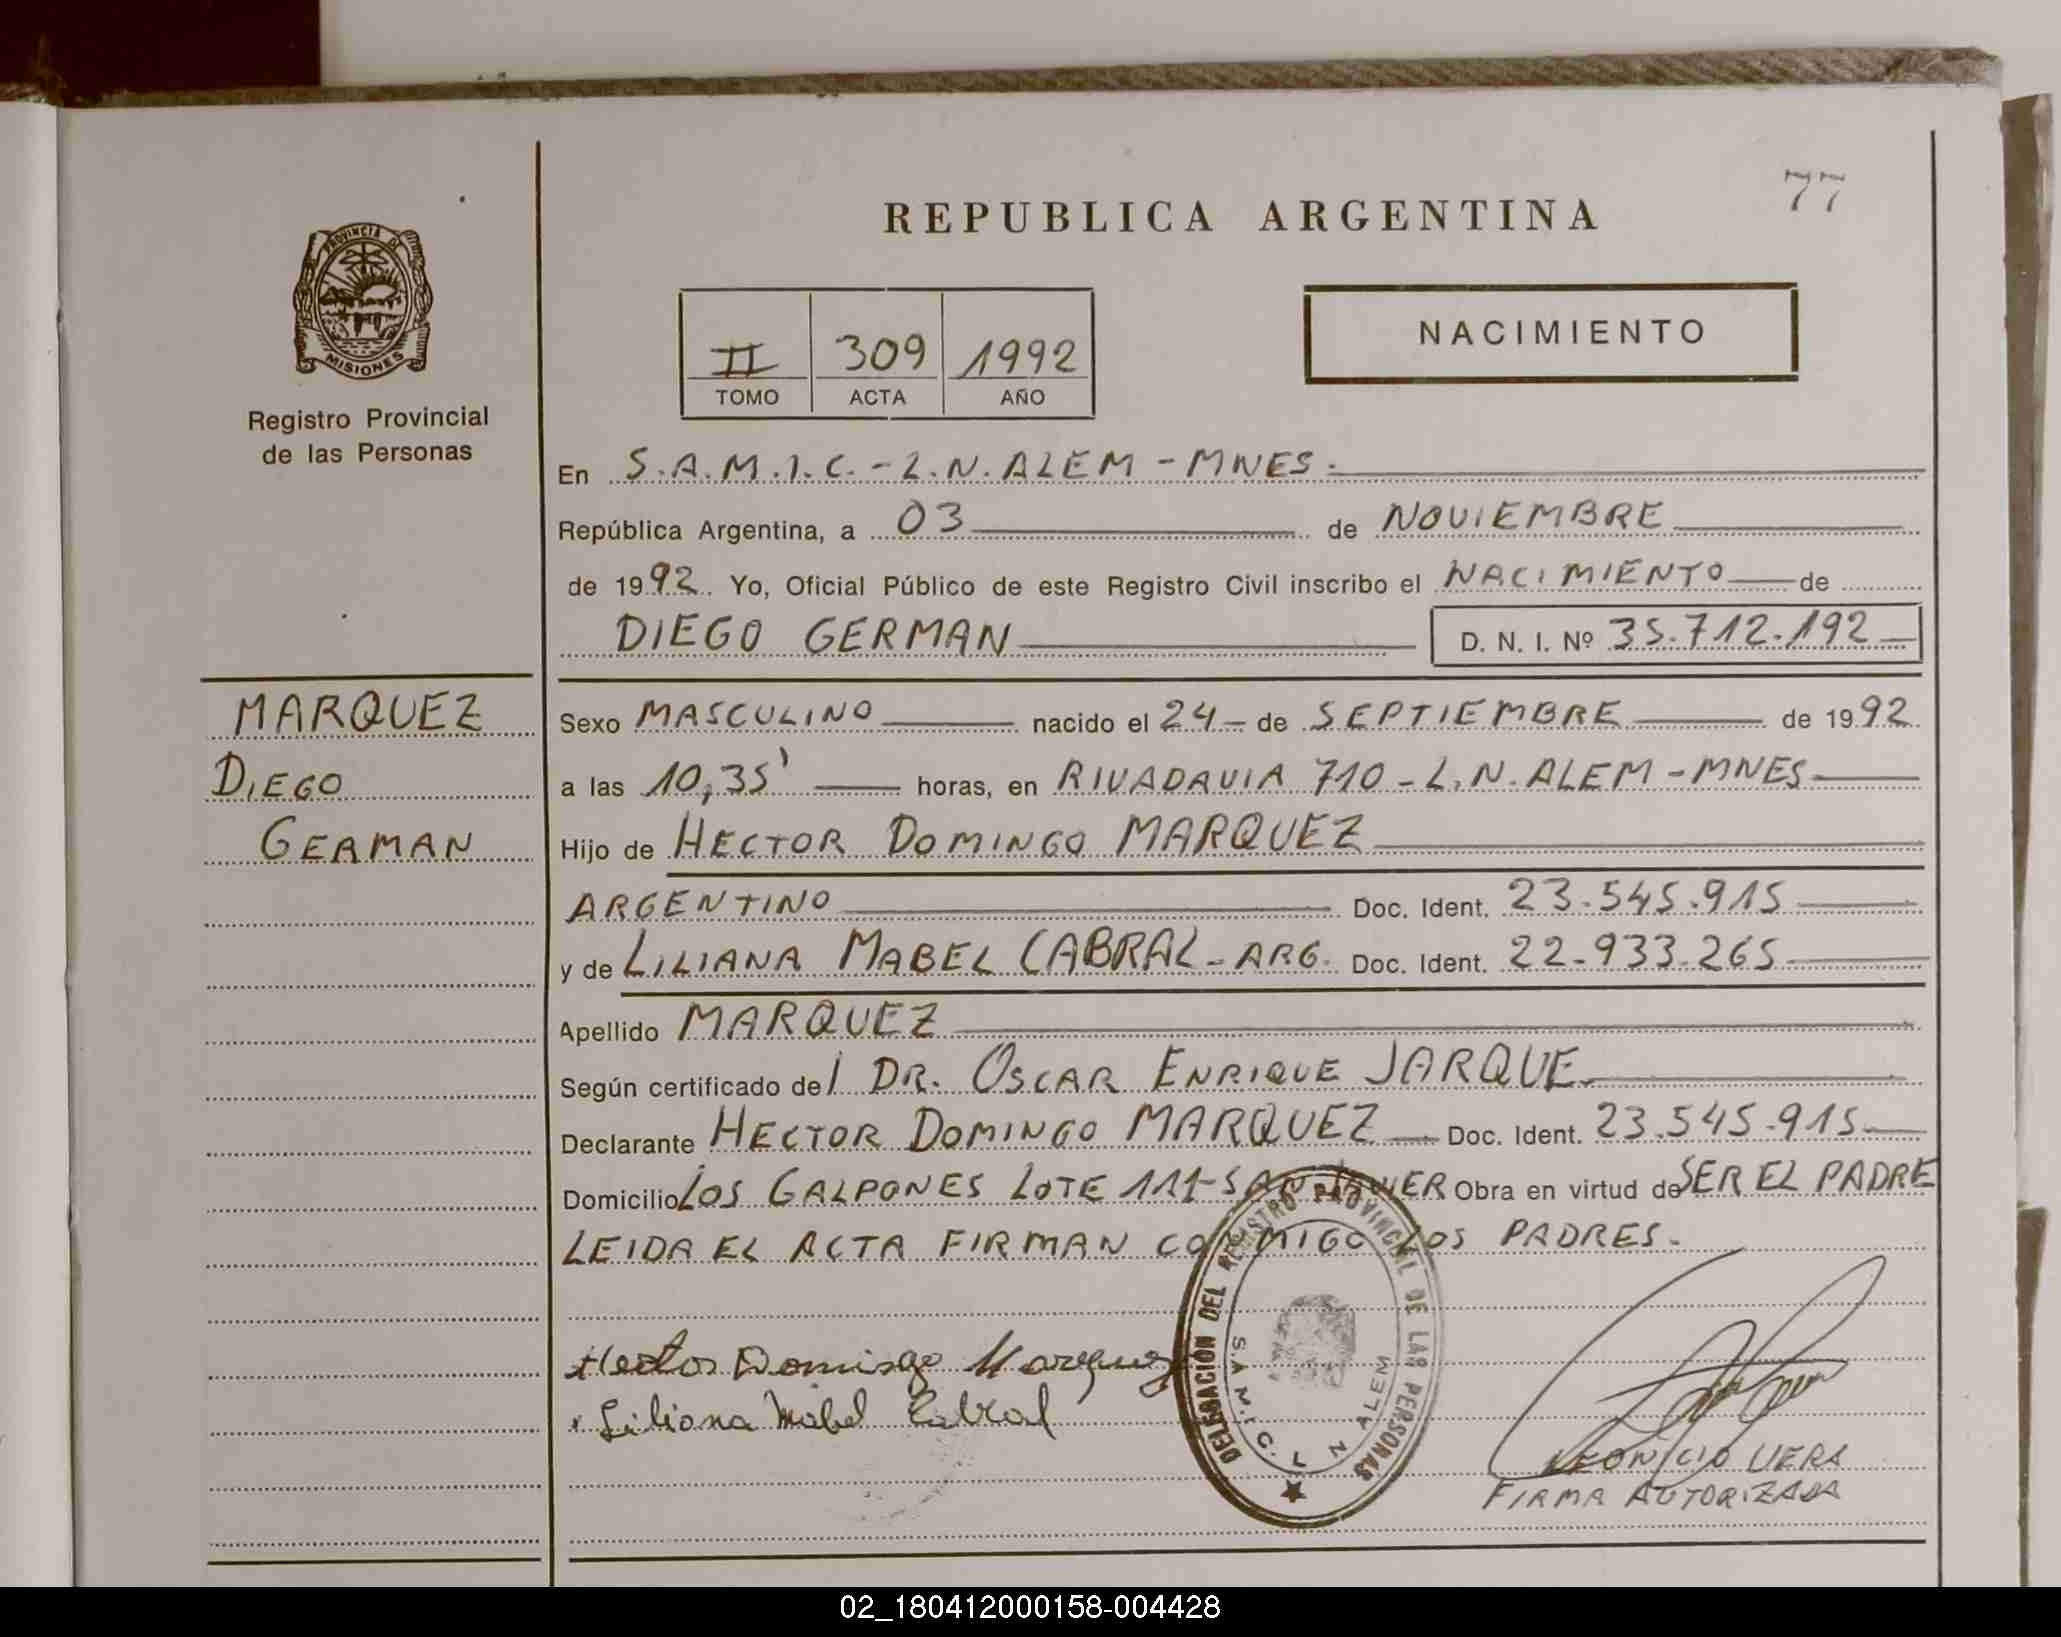 77
REPUBLICA ARGENTINA
PROVINCIA DE
MISIONES
Registro Provincial
de las Personas
II 309 1992
TOMO ACTA AÑO
NACIMIENTO
En S.A.M.I.C. - L.N. ALEM - MNES.
República Argentina, a 03 de NOVIEMBRE
de 1992. Yo, Oficial Público de este Registro Civil inscribo el NACIMIENTO de
DIEGO GERMAN D. N. I. Nº 35.712.192
MARQUEZ
DIEGO
GERMAN
Sexo MASCULINO nacido el 24 de SEPTIEMBRE de 1992
a las 10,35' horas, en RIVADAVIA 710 - L.N. ALEM - MNES
Hijo de HECTOR DOMINGO MARQUEZ
ARGENTINO Doc. Ident. 23.545.915
y de LILIANA MABEL CABRAL - ARG. Doc. Ident. 22.933.265
Apellido MARQUEZ
Según certificado del DR. OSCAR ENRIQUE JARQUE
Declarante HECTOR DOMINGO MARQUEZ Doc. Ident. 23.545.915
Domicilio LOS GALPONES LOTE 111 - SAN JAVIER Obra en virtud de SER EL PADRE
LEIDA EL ACTA FIRMAN CONMIGO LOS PADRES.
Hector Domingo Marquez
Liliana Mabel Cabral
DELEGACION DEL REGISTRO PROVINCIAL DE LAS PERSONAS
S.A.M.I.C. L N ALEM
LEONICIO VERA
FIRMA AUTORIZADA
02_180412000158-004428